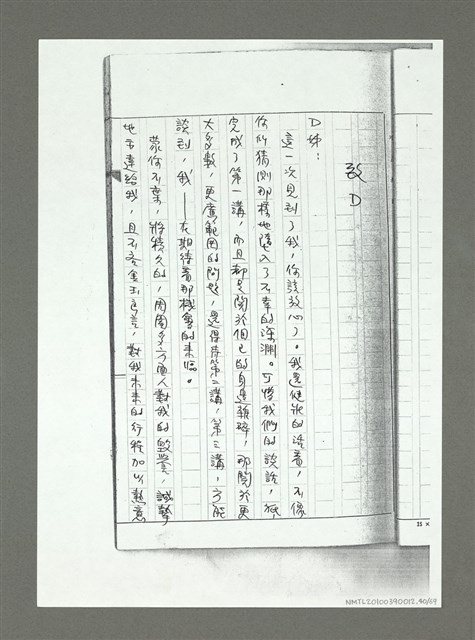 致D
D姊：
這一次見到了我，你該放心了。我還健壯的活着，不像
你所猜測那樣地墮入了不幸的深淵。可惜我們的談話，祇
完成了第一講，而且都是關於個己的身邊雜碎，那關於更
大多數，更廣範圍的問題，還得等第二講，第三講，方能
談到，我——在期待着那機會的來臨。
蒙你不棄，將積久的，周圍多方面人對我的毀譽，誠摯
地予達給我，且不吝金玉良言，對我未來的行程加以熱意
25 ×
NMTL20100390012.40/69